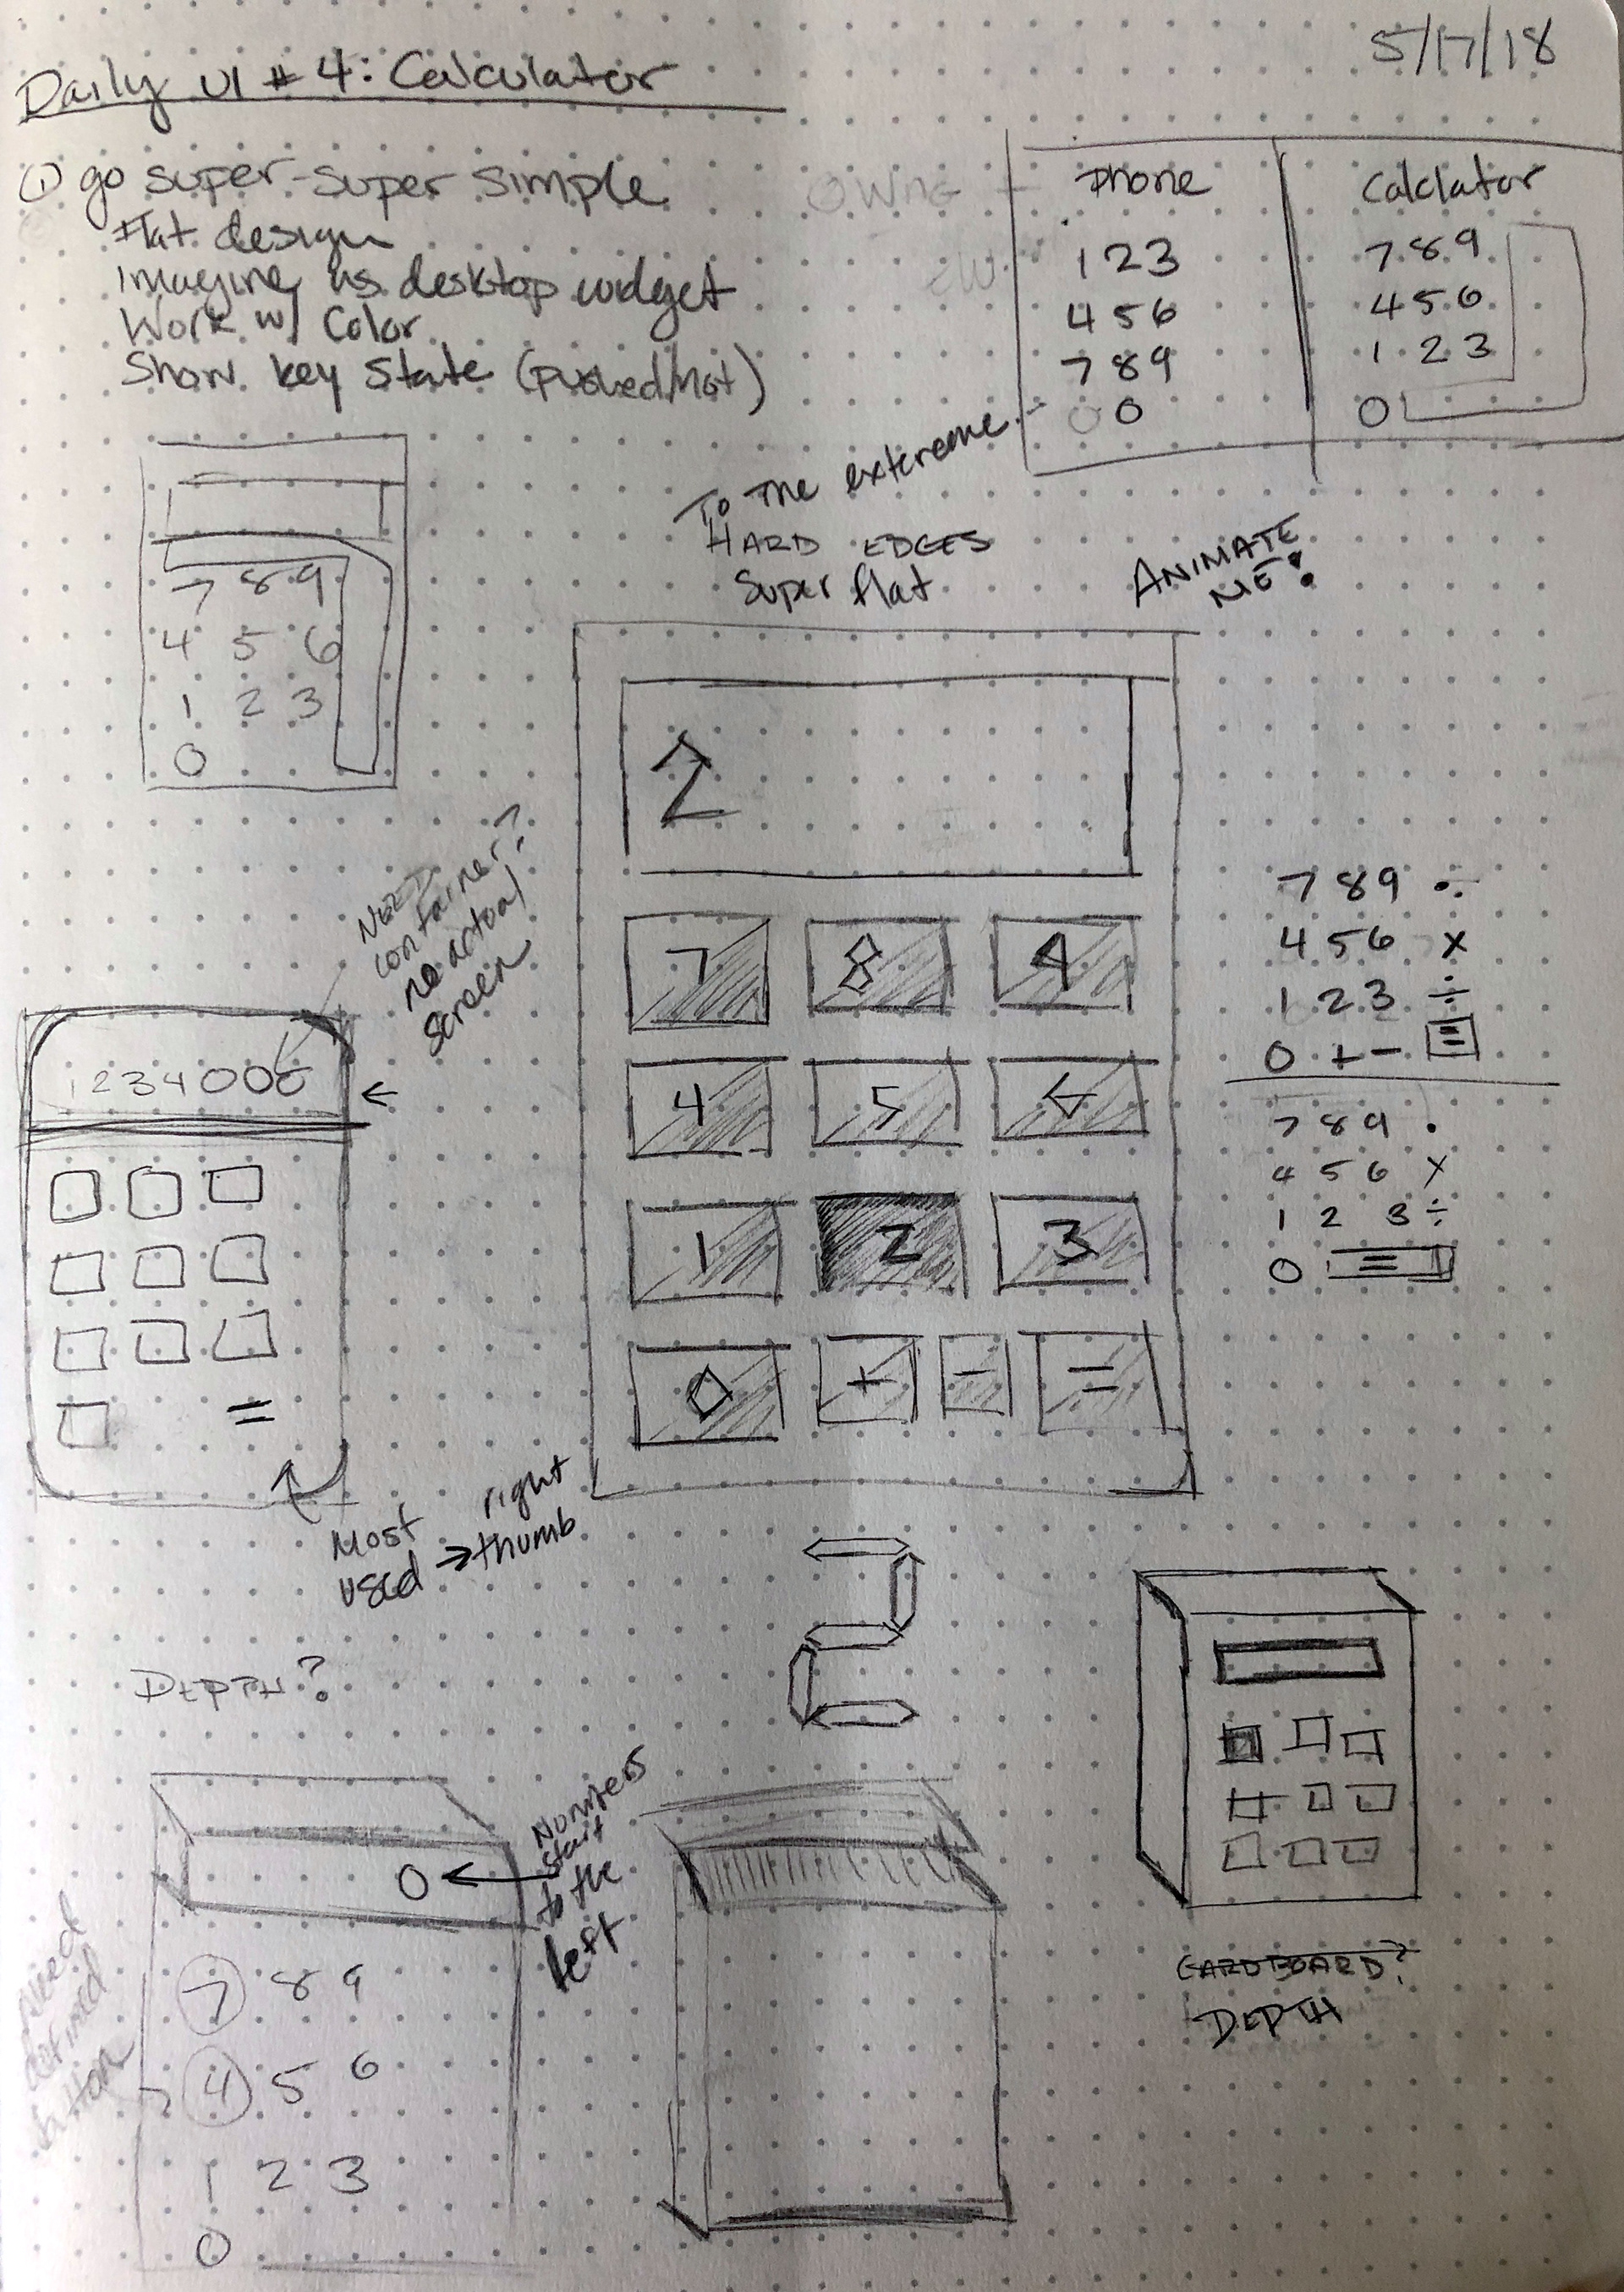 5/17/18
Daily UI # 4: Calculator
① go super-super simple
Flat design
Imagine as desktop widget
Work w/ Color
Show key state (pushed/not)
Phone
1 2 3
4 5 6
7 8 9
0
Calclator
7 8 9
4 5 6
1 2 3
0
To the extereme
HARD EDGES
Super flat
ANIMATE
ME!
7 8 9
4 5 6
1 2 3
0
2
7 8 9
4 5 6
1 2 3
0 + - =
NEED
container?
no actual
screen
1234000
=
Most
used → right
thumb
7 8 9 ÷
4 5 6 x
1 2 3 ÷
0 + - =
7 8 9 .
4 5 6 x
1 2 3 ÷
0 =
2
DEPTH?
0 ←
Numbers
start
to the
left
7 8 9
4 5 6
1 2 3
0
Need
defined
button
CARDBOARD?
DEPTH